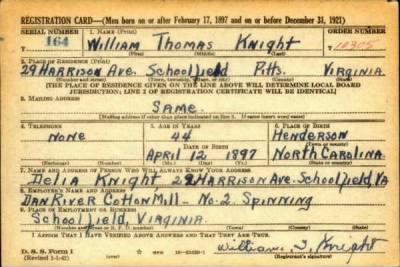 REGISTRATION CARD—(Men born on or after February 17, 1897 and on or before December 31, 1921)
SERIAL NUMBER 1. NAME (Print) ORDER NUMBER
164 William Thomas Knight 10305
(First) (Middle) (Last)
2. PLACE OF RESIDENCE (Print)
29 HARRISON Ave. Schoolfield Pitts. Virginia
(Number and street) (Town, township, village, or city) (County) (State)
[THE PLACE OF RESIDENCE GIVEN ON THE LINE ABOVE WILL DETERMINE LOCAL BOARD
JURISDICTION; LINE 2 OF REGISTRATION CERTIFICATE WILL BE IDENTICAL]
3. MAILING ADDRESS
SAME.
[Mailing address if other than place indicated on line 2. If same insert word same]
4. TELEPHONE 5. AGE IN YEARS 6. PLACE OF BIRTH
NONE 44 Henderson
DATE OF BIRTH (Town or county)
APRIL 12 1897 NORTH CAROLINA
(Exchange) (Number) (Mo.) (Day) (Yr.) (State or country)
7. NAME AND ADDRESS OF PERSON WHO WILL ALWAYS KNOW YOUR ADDRESS
Delia Knight 29 HARRISON Ave. Schoolfield, VA
8. EMPLOYER'S NAME AND ADDRESS
DAN RIVER COTTON MILL - No. 2. SPINNING
9. PLACE OF EMPLOYMENT OR BUSINESS
Schoolfield, VIRGINIA.
(Number and street or R. F. D. number) (Town) (County) (State)
I AFFIRM THAT I HAVE VERIFIED ABOVE ANSWERS AND THAT THEY ARE TRUE.
D. S. S. Form 1
(Revised 1-1-42) (over) William T. Knight
(Registrant's signature)